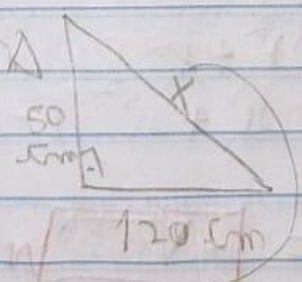 X
50
cm
120 cm